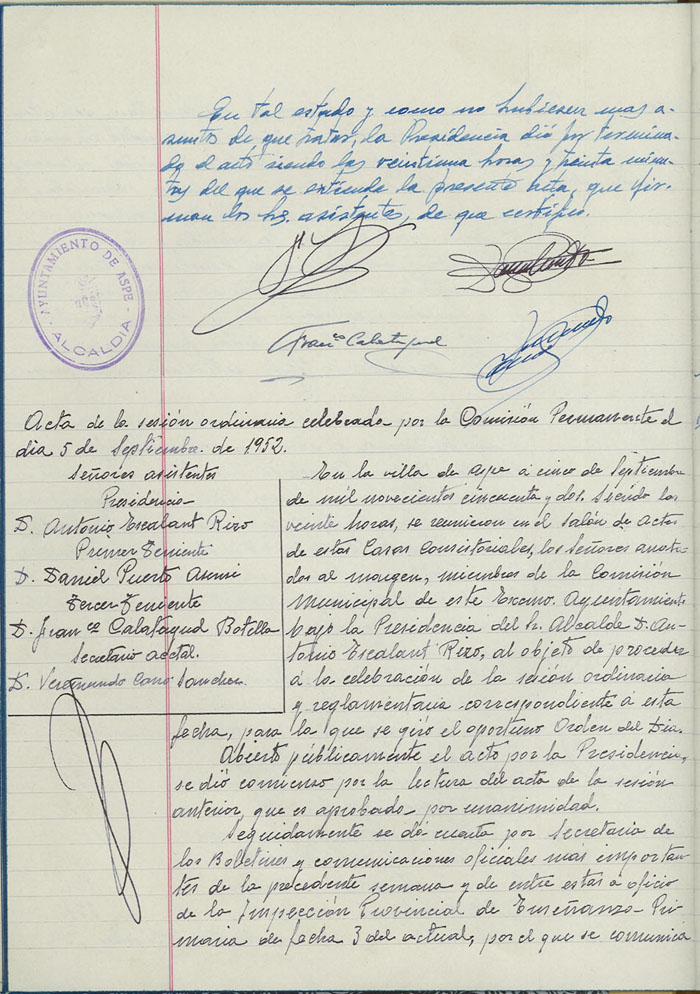 En tal estado y como no hubiesen mas a-
suntos de que tratar, la Presidencia dió por termina-
do el acto siendo las veintiuna horas y treinta minu-
tos del que se extiende la presente Acta, que fir-
man los Sres. asistentes, de que certifico.
AYUNTAMIENTO DE ASPE
ALCALDIA
Franco Calatayud
Acta de la sesión ordinaria celebrada por la Comisión Permanente el
dia 5 de Septiembre de 1952.
Señores asistentes
Presidencia
D. Antonio Escalant Rizo
Primer Teniente
D. Daniel Puerto Asensi
Tercer Teniente
D. Franco Calatayud Botella
Secretario acctal.
D. Veremundo Cano Sanchez
En la villa de Aspe a cinco de Septiembre
de mil novecientos cincuenta y dos. Siendo las
veinte horas, se reunieron en el Salón de Actos
de estas Casas Consistoriales, los Señores anota-
dos al margen, miembros de la Comisión
Municipal de este Excmo. Ayuntamiento
bajo la Presidencia del Sr. Alcalde D. An-
tonio Escalant Rizo, al objeto de proceder
á la celebración de la sesión ordinaria
y reglamentaria correspondiente á esta
fecha, para la que se giró el oportuno Orden del Dia.
Abierto públicamente el acto por la Presidencia,
se dió comienso por la lectura del acta de la sesión
anterior, que es aprobada por unanimidad.
Seguidamente se da cuenta por Secretaria de
los Boletines y comunicaciones oficiales más importan-
tes de la precedente semana y de entre estas a oficio
de la Inspección Provincial de Enseñanza Pri-
maria de fecha 3 del actual, por el que se comunica